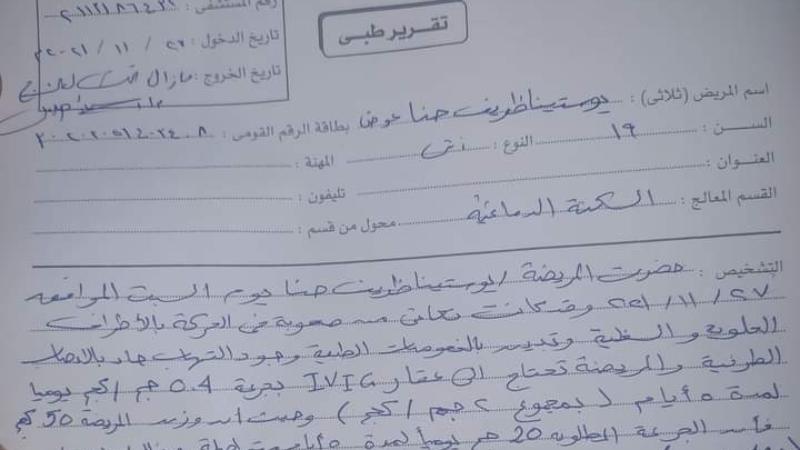 رقم المستشفى :
تقرير طبى
تاريخ الدخول : ٢٧ / ١١ / ٢٠٢١
تاريخ الخروج : مازال تحت العلاج
اسم المريض (ثلاثى) : يوستينا ظريف حنا عوض بطاقة الرقم القومى :
السن : ١٩ النوع : انثى المهنة :
العنوان : تليفون :
القسم المعالج : السكتة الدماغية محول من قسم :
التشخيص : حضرت المريضة / يوستينا ظريف حنا يوم السبت الموافق
٢٧ / ١١ / ٢٠٢١ وقد كانت تعانى من صعوبة فى الحركة بالأطراف
العلوية و السفلية وتبين بالفحوصات الطبية وجود التهاب حاد بالاعصاب
الطرفية والمريضة تحتاج الى عقار IVIG بجرعة 0.4 جم / كجم يوميا
لمدة ٥ أيام ( بمجموع ٢ جم / كج ) وحيث أن وزن المريضة 50 كج
فأن الجرعة المطلوبة 20 جم يوميا لمدة ٥ أيام